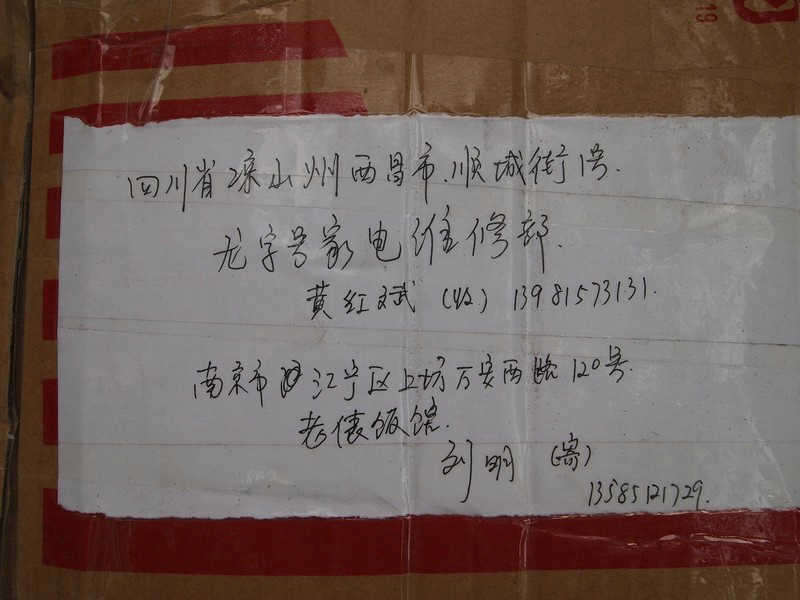 19
四川省凉山州西昌市、顺城街1号.
龙字号家电维修部.
黄红斌 (收) 13981573131.
南京市江宁区上坊万安西路120号.
老俵饭馆.
刘明 (寄)
13585121729.